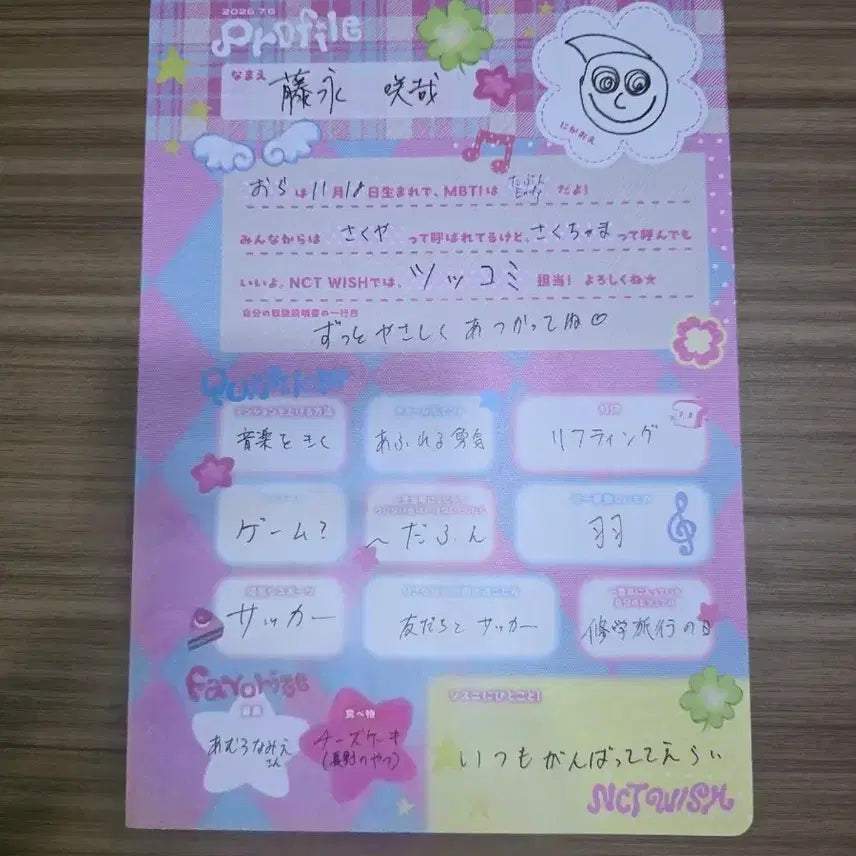 2026 7.6
Profile
なまえ
藤永 咲哉
にがおえ
おらは11月18日生まれで、MBTIは たぶん だよ!
みんなからは さくや って呼ばれてるけど、さくちゃま って呼んでも
いいよ。NCT WISHでは、ツッコミ 担当! よろしくね★
自分の取扱説明書の一行目
ずっとやさしく あつかってね♡
テンションを上げる方法
チャームポイント
特技
音楽をきく
あふれる勇気
リフティング
ゲーム?
〜だふん
羽
得意なスポーツ
サッカー
友だちとサッカー
修学旅行の日
Favorite
音楽
食べ物
あむろなみえさん
チーズケーキ
(長野のやつ)
リスニにひとこと!
いつもがんばっててえらい
NCT WISH